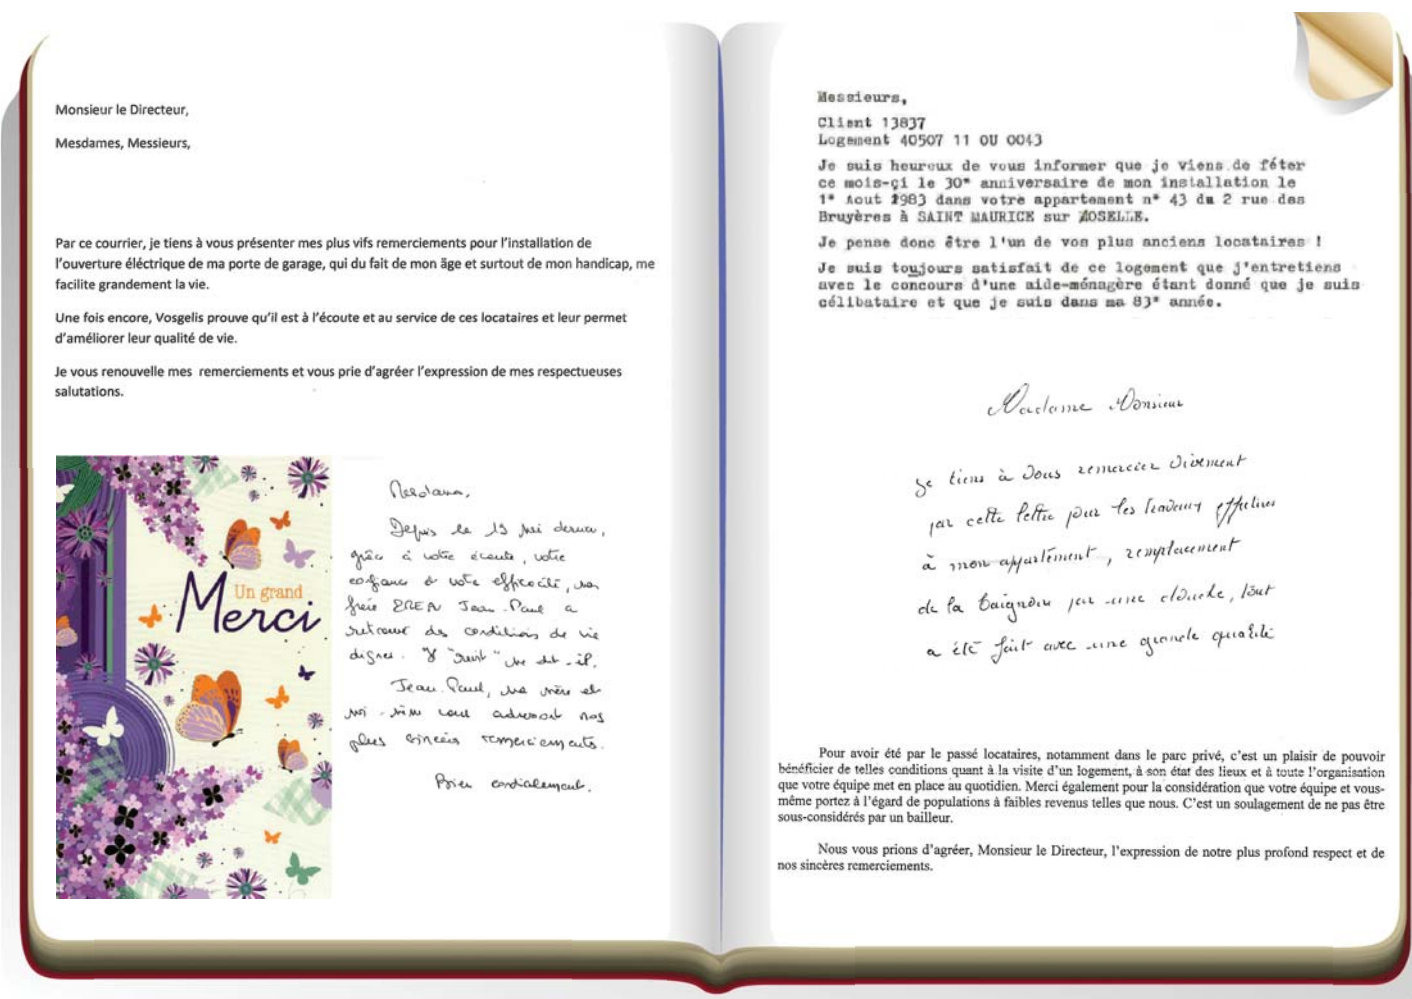 Monsieur le Directeur,
Mesdames, Messieurs,
Par ce courrier, je tiens à vous présenter mes plus vifs remerciements pour l'installation de
l'ouverture éléctrique de ma porte de garage, qui du fait de mon äge et surtout de mon handicap, me
facilite grandement la vie.
Une fois encore, Vosgelis prouve qu'il est à l'écoute et au service de ces locataires et leur permet
d'améliorer leur qualité de vie.
Je vous renouvelle mes remerciements et vous prie d'agréer l'expression de mes respectueuses
salutations.
Un grand
Merci
Madame,
Depuis le 19 mai dernier,
grâce à votre écoute, votre
confiance et votre efficacité, mon
frère Jean-Paul a
retrouvé des conditions de vie
dignes. Il "revit" me dit-il.
Jean-Paul, ma mère et
moi-même vous adressons nos
plus sincères remerciements.
Bien cordialement.
Messieurs,
Client 13837
Logement 40507 11 OU 0043
Je suis heureux de vous informer que je viens de féter
ce mois-çi le 30* anniversaire de mon installation le
1* Aout 1983 dans votre appartement n* 43 du 2 rue des
Bruyères à SAINT MAURICE sur MOSELLE.
Je pense donc être l'un de vos plus anciens locataires !
Je suis toujours satisfait de ce logement que j'entretiens
avec le concours d'une aide-ménagère étant donné que je suis
célibataire et que je suis dans ma 83* année.
Madame Monsieur
je tiens à vous remercier vivement
par cette lettre pour les travaux effectués
à mon appartement, remplacement
de la baignoire par une douche, tout
a été fait avec une grande qualité
Pour avoir été par le passé locataires, notamment dans le parc privé, c'est un plaisir de pouvoir
bénéficier de telles conditions quant à la visite d'un logement, à son état des lieux et à toute l'organisation
que votre équipe met en place au quotidien. Merci également pour la considération que votre équipe et vous-
même portez à l'égard de populations à faibles revenus telles que nous. C'est un soulagement de ne pas être
sous-considérés par un bailleur.
Nous vous prions d'agréer, Monsieur le Directeur, l'expression de notre plus profond respect et de
nos sincères remerciements.